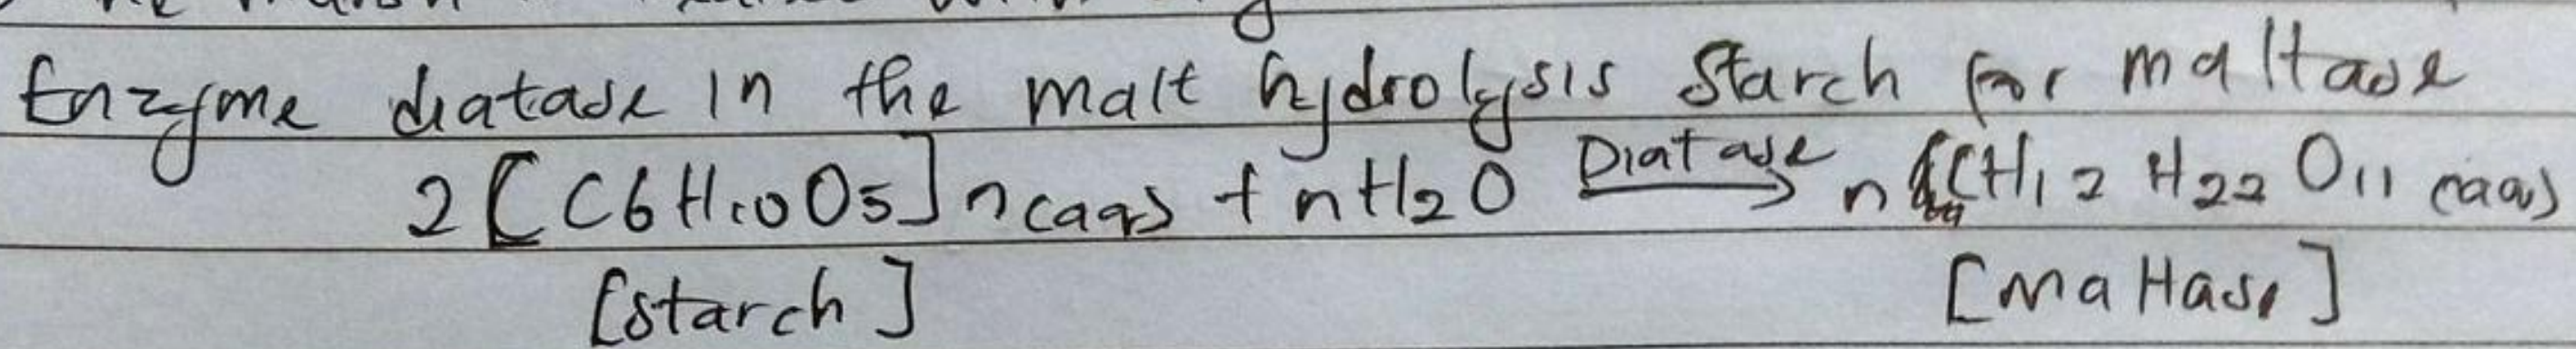 Enzyme diatase in the malt hydrolysis starch for maltase
2[C6H10O5]n(aq) + nH2O Diatase → n CH12H22O11 (aq)
[starch] [maltase]